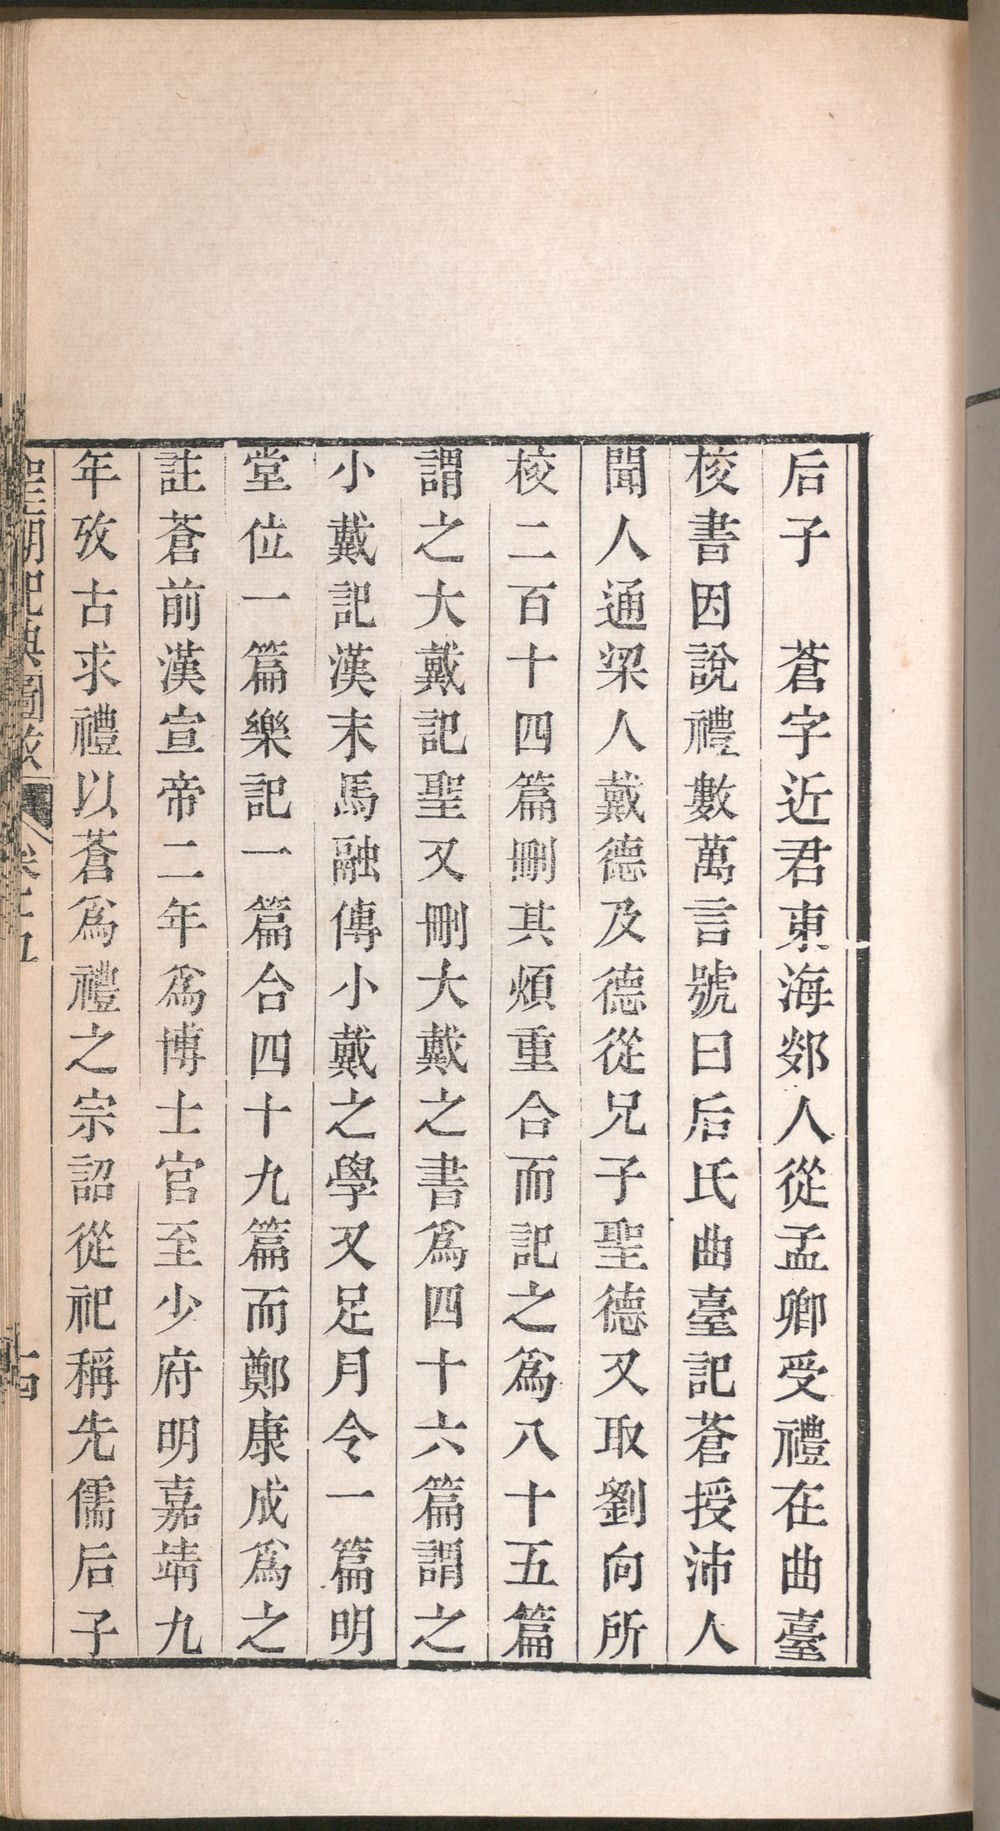 后子　蒼字近君東海郯人從孟卿受禮在曲臺
校書因說禮數萬言號曰后氏曲臺記蒼授沛人
聞人通梁人戴德及德從兄子聖德又取劉向所
校二百十四篇刪其煩重合而記之爲八十五篇
謂之大戴記聖又刪大戴之書爲四十六篇謂之
小戴記漢末馬融傳小戴之學又足月令一篇明
堂位一篇樂記一篇合四十九篇而鄭康成爲之
註蒼前漢宣帝二年爲博士官至少府明嘉靖九
年攷古求禮以蒼爲禮之宗詔從祀稱先儒后子
聖朝祀典圖攷　卷三五　十四